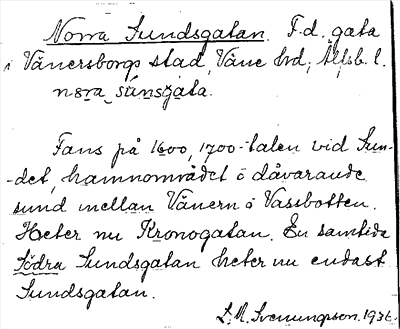 Norra Sundsgatan. F.d. gata
i Vänersborgs stad, Väne hd, Älfsb. l.
nora sunsgata.
Fans på 1600, 1700-talen vid Sun-
-det, hamnområdet i dåvarande
sund mellan Vänern o Vassbotten.
Heter nu Kronogatan. En samtida
Södra Sundsgatan heter nu endast
Sundsgatan.
S. M. Svenungsson. 1936.